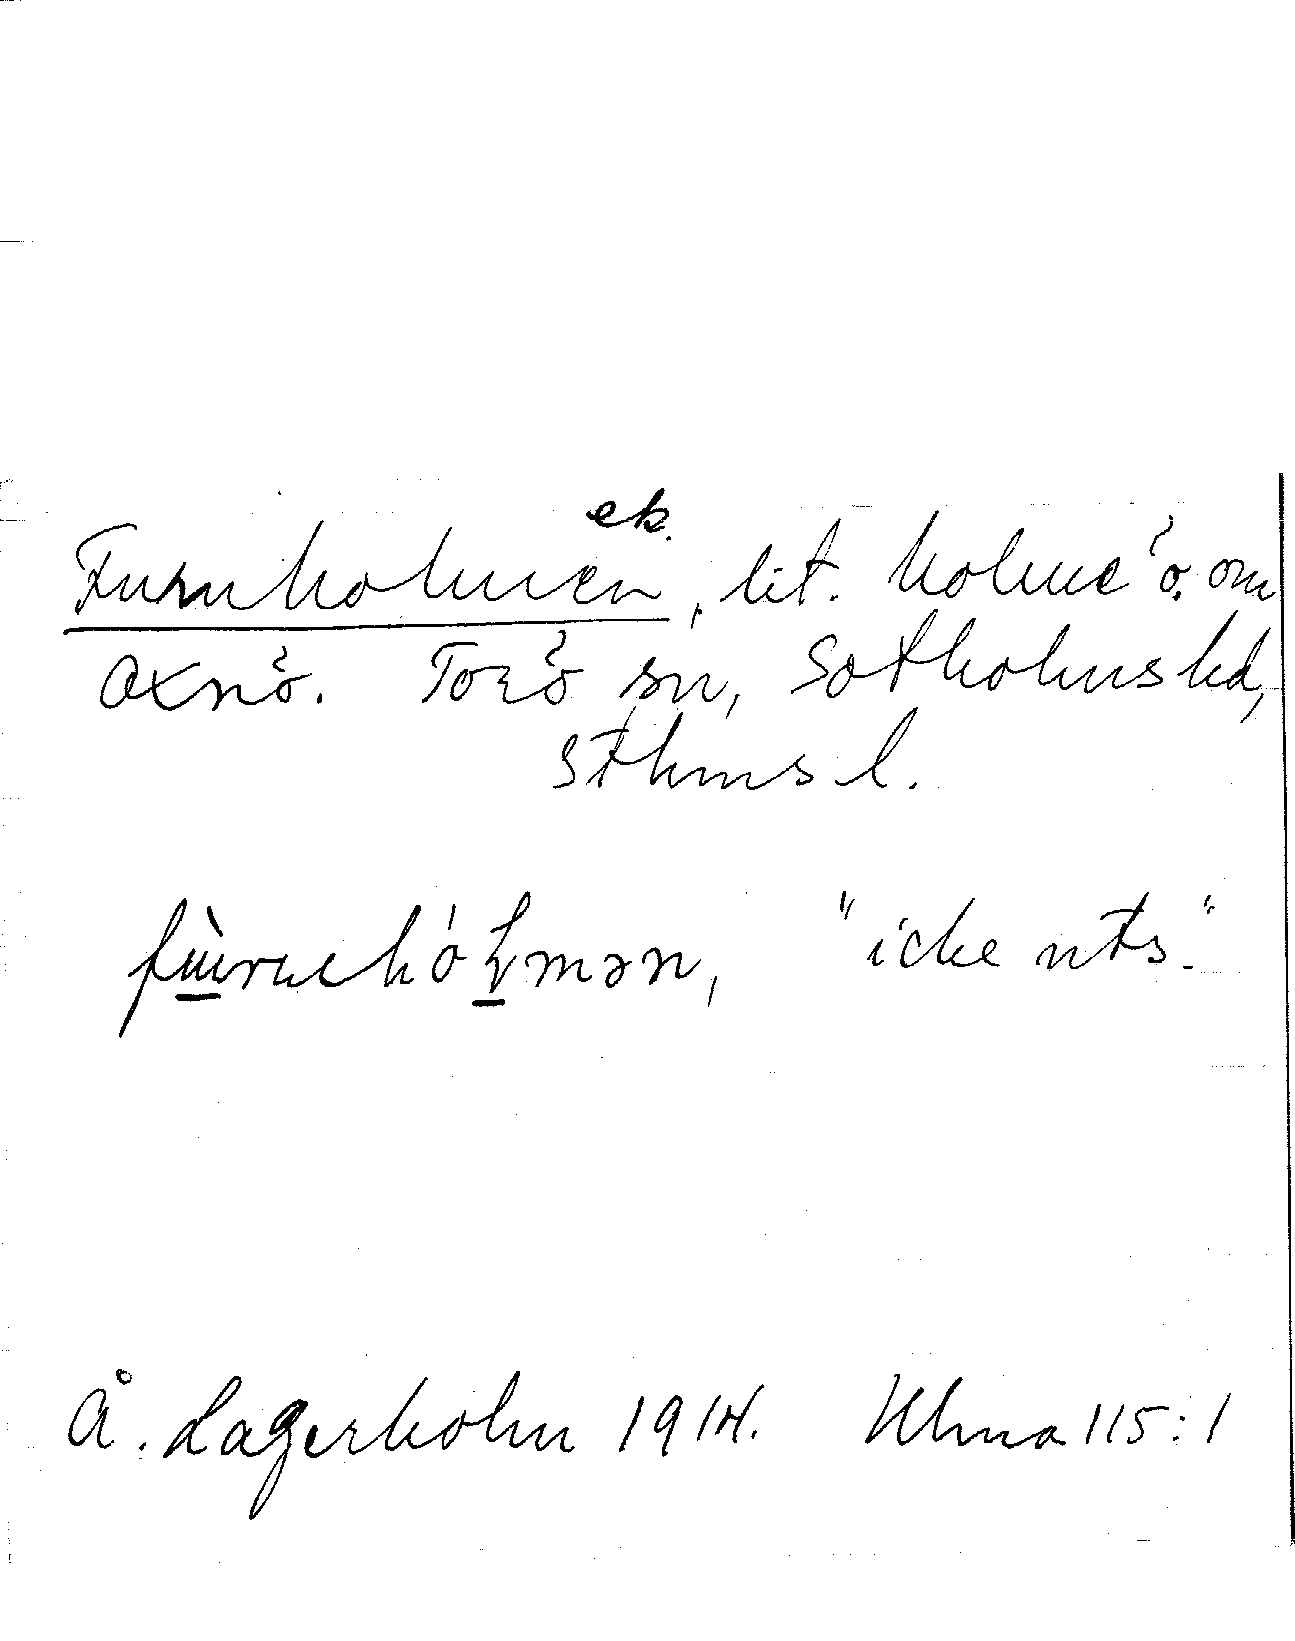 ek.
Furuholmen, lit. holme ö. om
Oxnö. Torö sn, Sotholms hd,
Sthms l.
fùruhóɫmən, "icke uts."
Å. Lagerholm 1914. Ulma 115:1